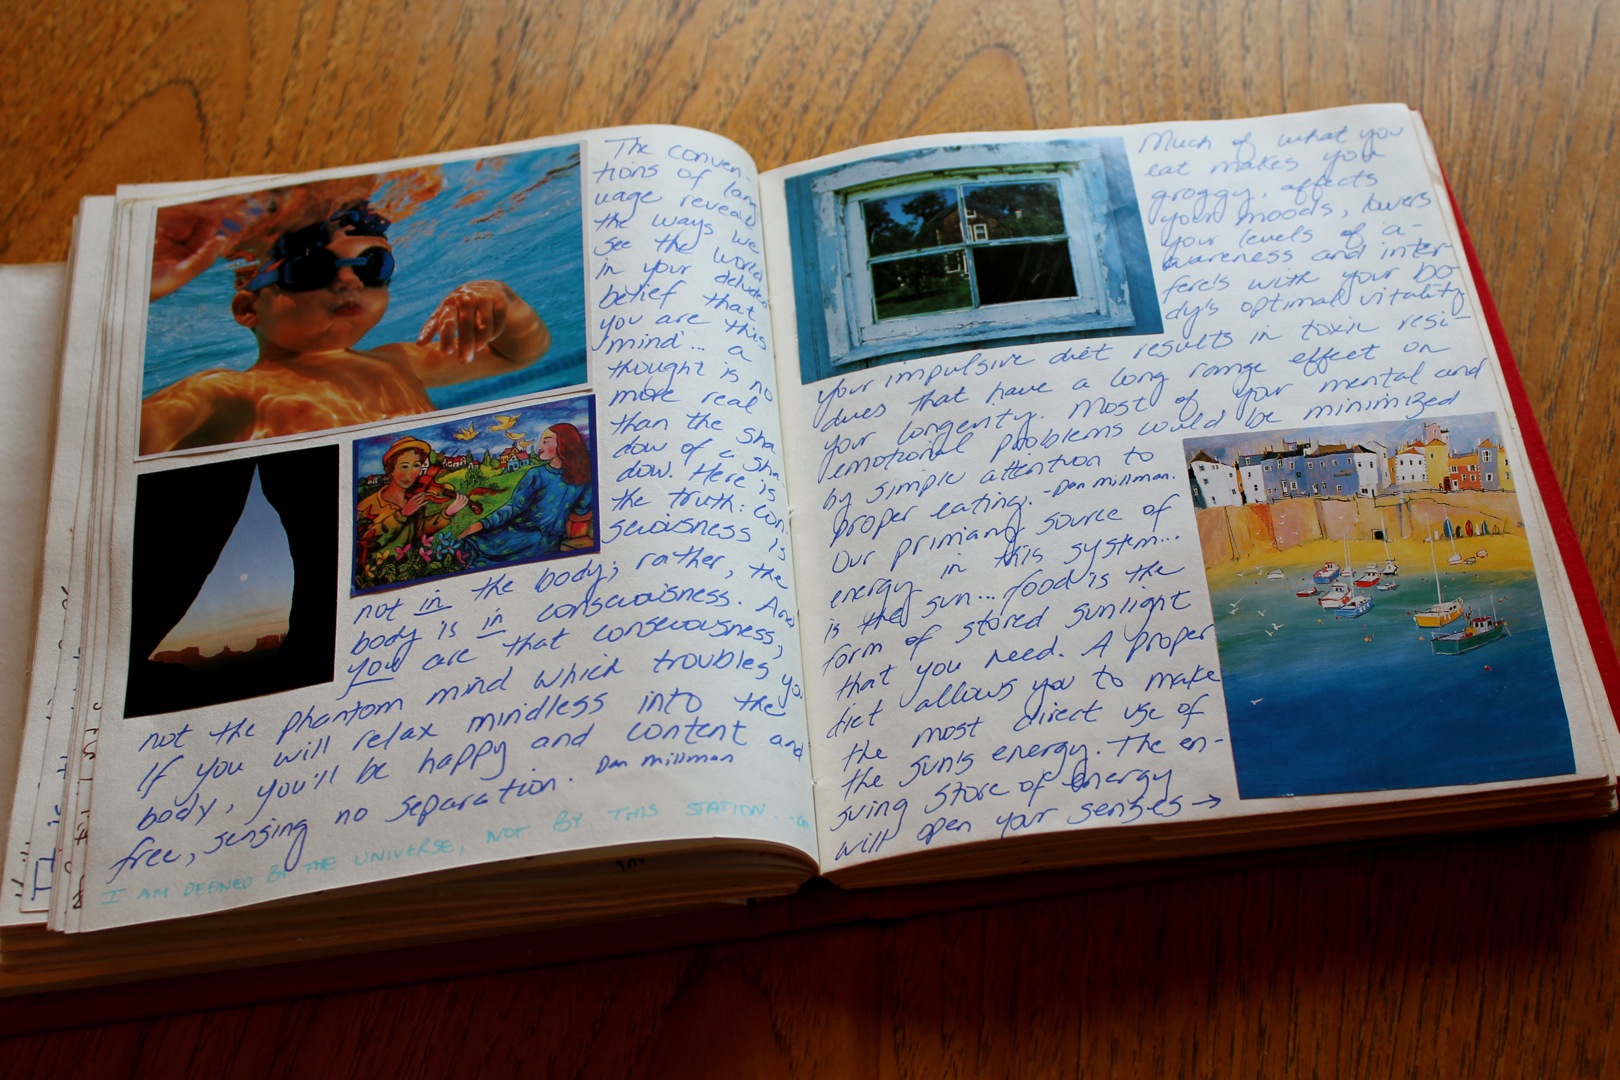 The conven-
tions of lang
uage reveal
the ways we
see the world
in your deluded
belief that
you are this
mind... a
thought is no
more real
than the sha
dow of a sha
dow. Here is
the truth: con
sciousness is
not in the body; rather, the
body is in consciousness. And
you are that consciousness,
not the phantom mind which troubles you.
If you will relax mindless into the
body, you'll be happy and content and
free, sensing no separation. Dan Millman
I AM DEFINED BY THE UNIVERSE, NOT BY THIS STATION.
Much of what you
eat makes you
groggy, affects
your moods, lowers
your levels of a-
wareness and inter
feres with your bo-
dy's optimal vitality
your impulsive diet results in toxic resi-
dues that have a long range effect on
your longenty. Most of your mental and
emotional problems would be minimized
by simple attention to
proper eating. -Dan Millman.
Our primary source of
energy in this system...
is the sun... food is the
form of stored sunlight
that you need. A proper
diet allows you to make
the most direct use of
the sun's energy. The en-
suing store of energy
will open your senses →